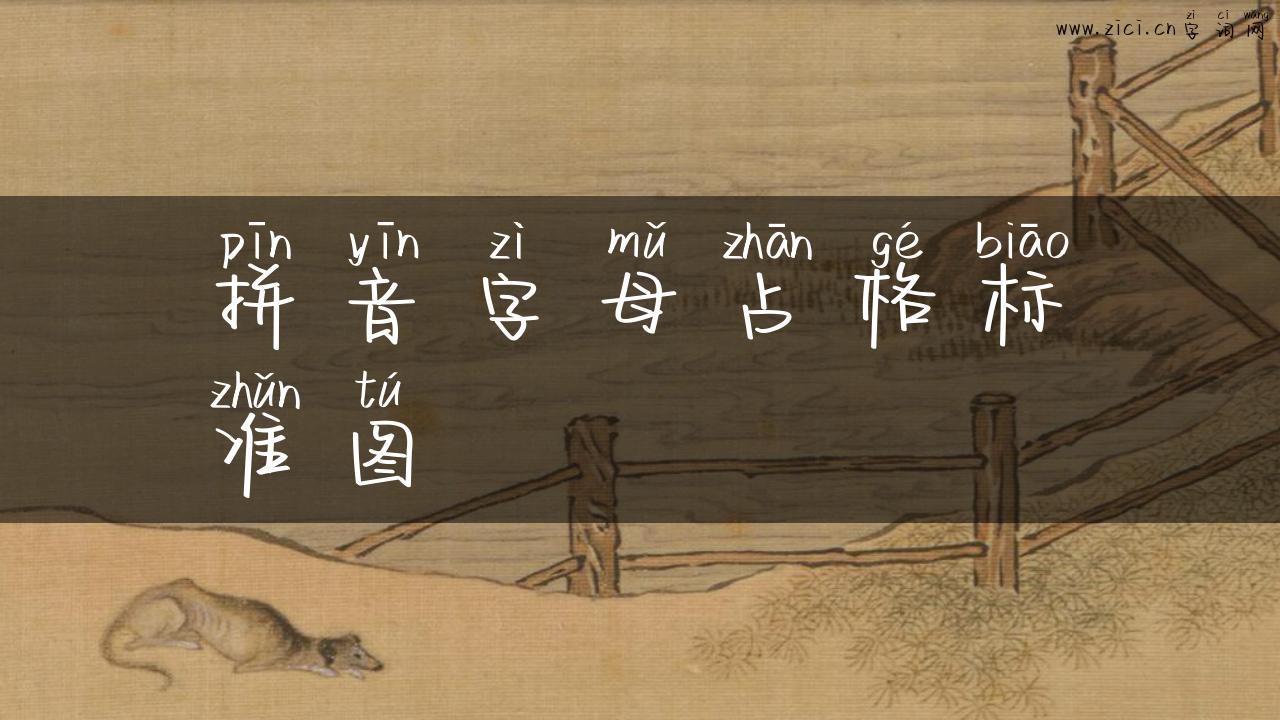 zì cí wǎng
www.zici.cn 字 词 网
pīn yīn zì mǔ zhān gé biāo
拼 音 字 母 占 格 标
zhǔn tú
准 图